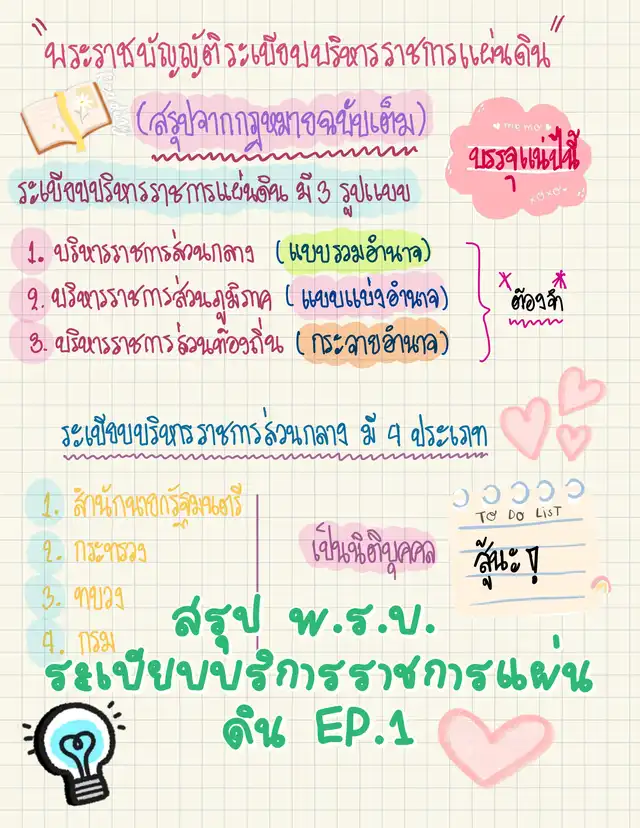 "พระราชบัญญัติระเบียบบริหารราชการแผ่นดิน"
(สรุปจากกฎหมายฉบับเต็ม)
memo
บรรจุแน่ปีนี้
xoxo
ระเบียบบริหารราชการแผ่นดิน มี 3 รูปแบบ
1. บริหารราชการส่วนกลาง (แบบรวมอำนาจ)
2. บริหารราชการส่วนภูมิภาค (แบบแบ่งอำนาจ)
3. บริหารราชการส่วนท้องถิ่น (กระจายอำนาจ)
*ต้องจำ*
ระเบียบบริหารราชการส่วนกลาง มี 4 ประเภท
1. สำนักนายกรัฐมนตรี
2. กระทรวง
3. ทบวง
4. กรม
เป็นนิติบุคคล
TO DO LIST
สู้นะ!
สรุป พ.ร.บ.
ระเบียบบริการราชการแผ่น
ดิน EP.1